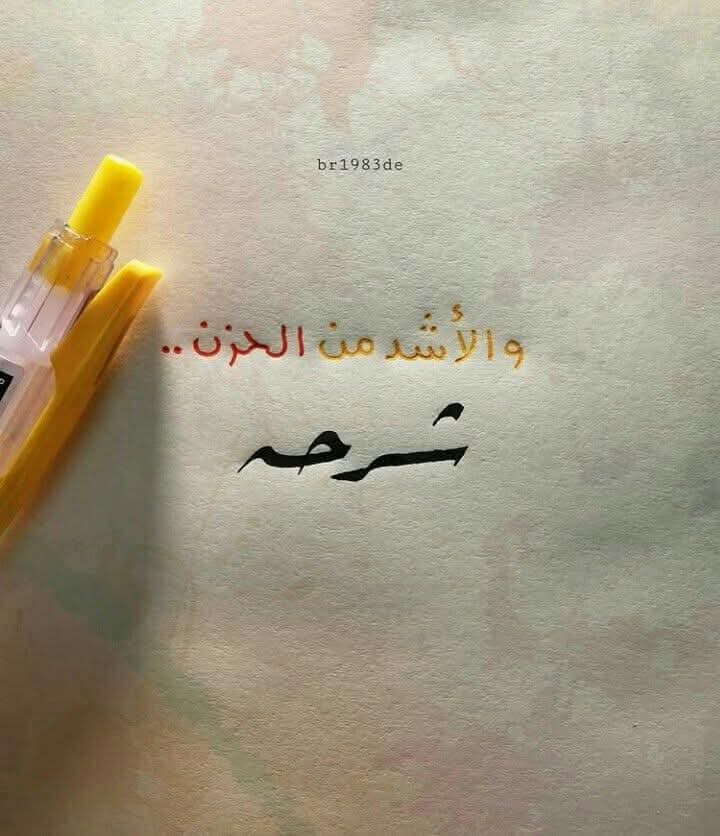 br1983de
والأشد من الحزن ..
شرحه